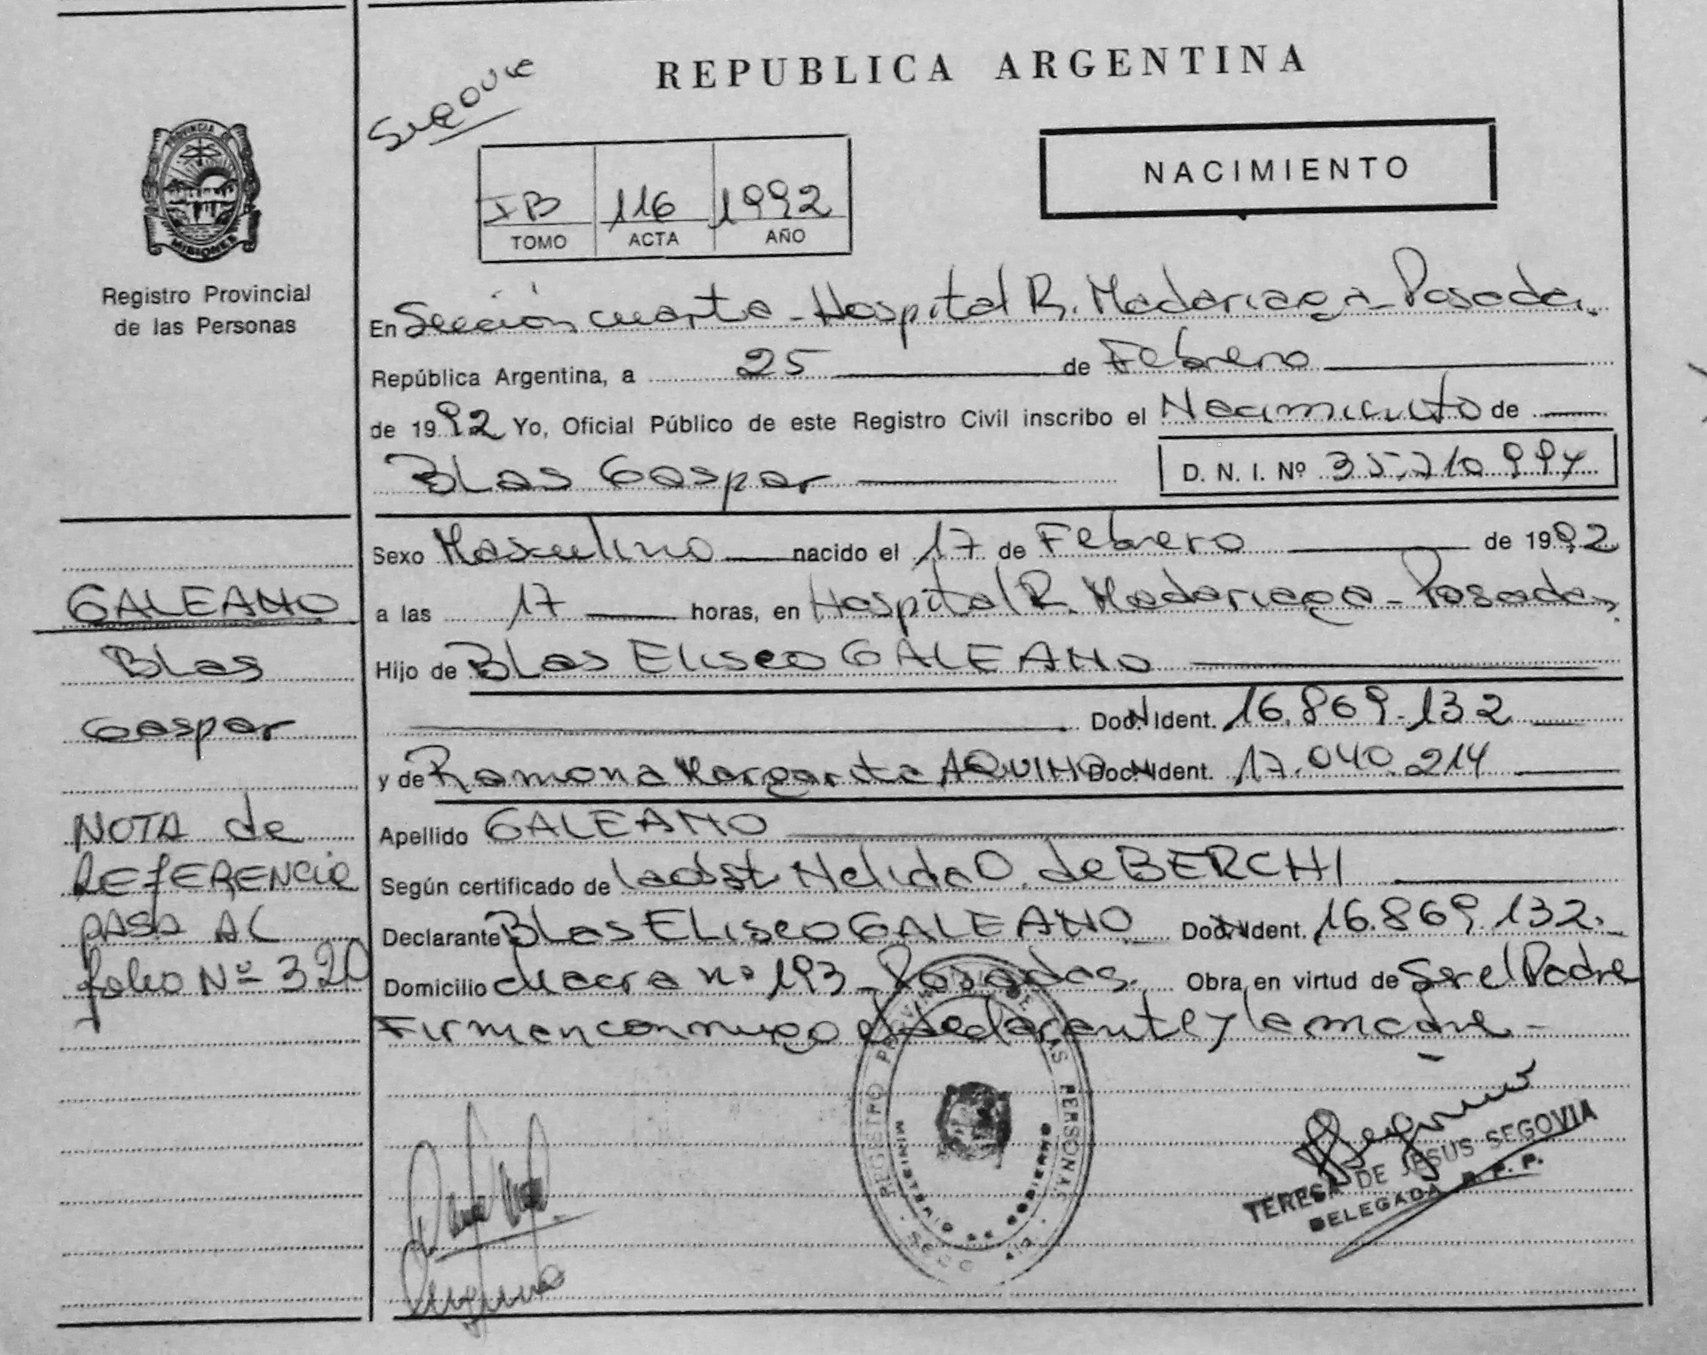 REPUBLICA ARGENTINA
Segovia
NACIMIENTO
IB 116 1992
TOMO ACTA AÑO
PROVINCIA DE
MISIONES
Registro Provincial
de las Personas
En Sección cuarta - Hospital R. Madariaga - Posadas.
República Argentina, a 25 de Febrero
de 1992 Yo, Oficial Público de este Registro Civil inscribo el Nacimiento de
Blas Gaspar D. N. I. Nº 35.710.997
Sexo Masculino nacido el 17 de Febrero de 1992
a las 17 horas, en Hospital R. Madariaga - Posadas,
Hijo de Blas Eliseo GALEANO
Doc. N Ident. 16.869.132
y de Ramona Margarita AQUINO Doc. N Ident. 17.040.214
Apellido GALEANO
Según certificado de la obst Nelida O. de BERCHI
Declarante Blas ELiseo GALEANO Doc. N Ident. 16.869.132.
Domicilio chacra nº 193 - Posadas. Obra en virtud de Ser el Padre
Firman conmigo el declarante y la madre -
GALEANO
Blas
Gaspar
NOTA de
REFERENCIA
PASA AL
folio Nº 320
REGISTRO PROVINCIAL DE LAS PERSONAS
MINISTERIO DE GOBIERNO
TERESA DE JESUS SEGOVIA
DELEGADA R. P. P.